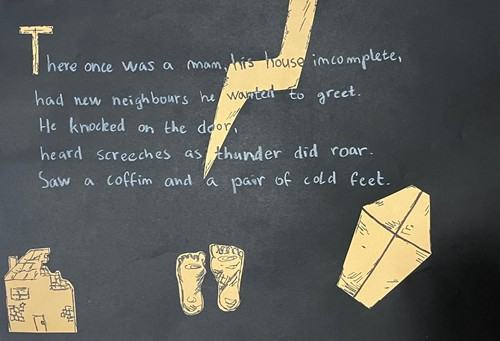 There once was a man, his house incomplete,
had new neighbours he wanted to greet.
He knocked on the door,
heard screeches as thunder did roar.
Saw a coffin and a pair of cold feet.